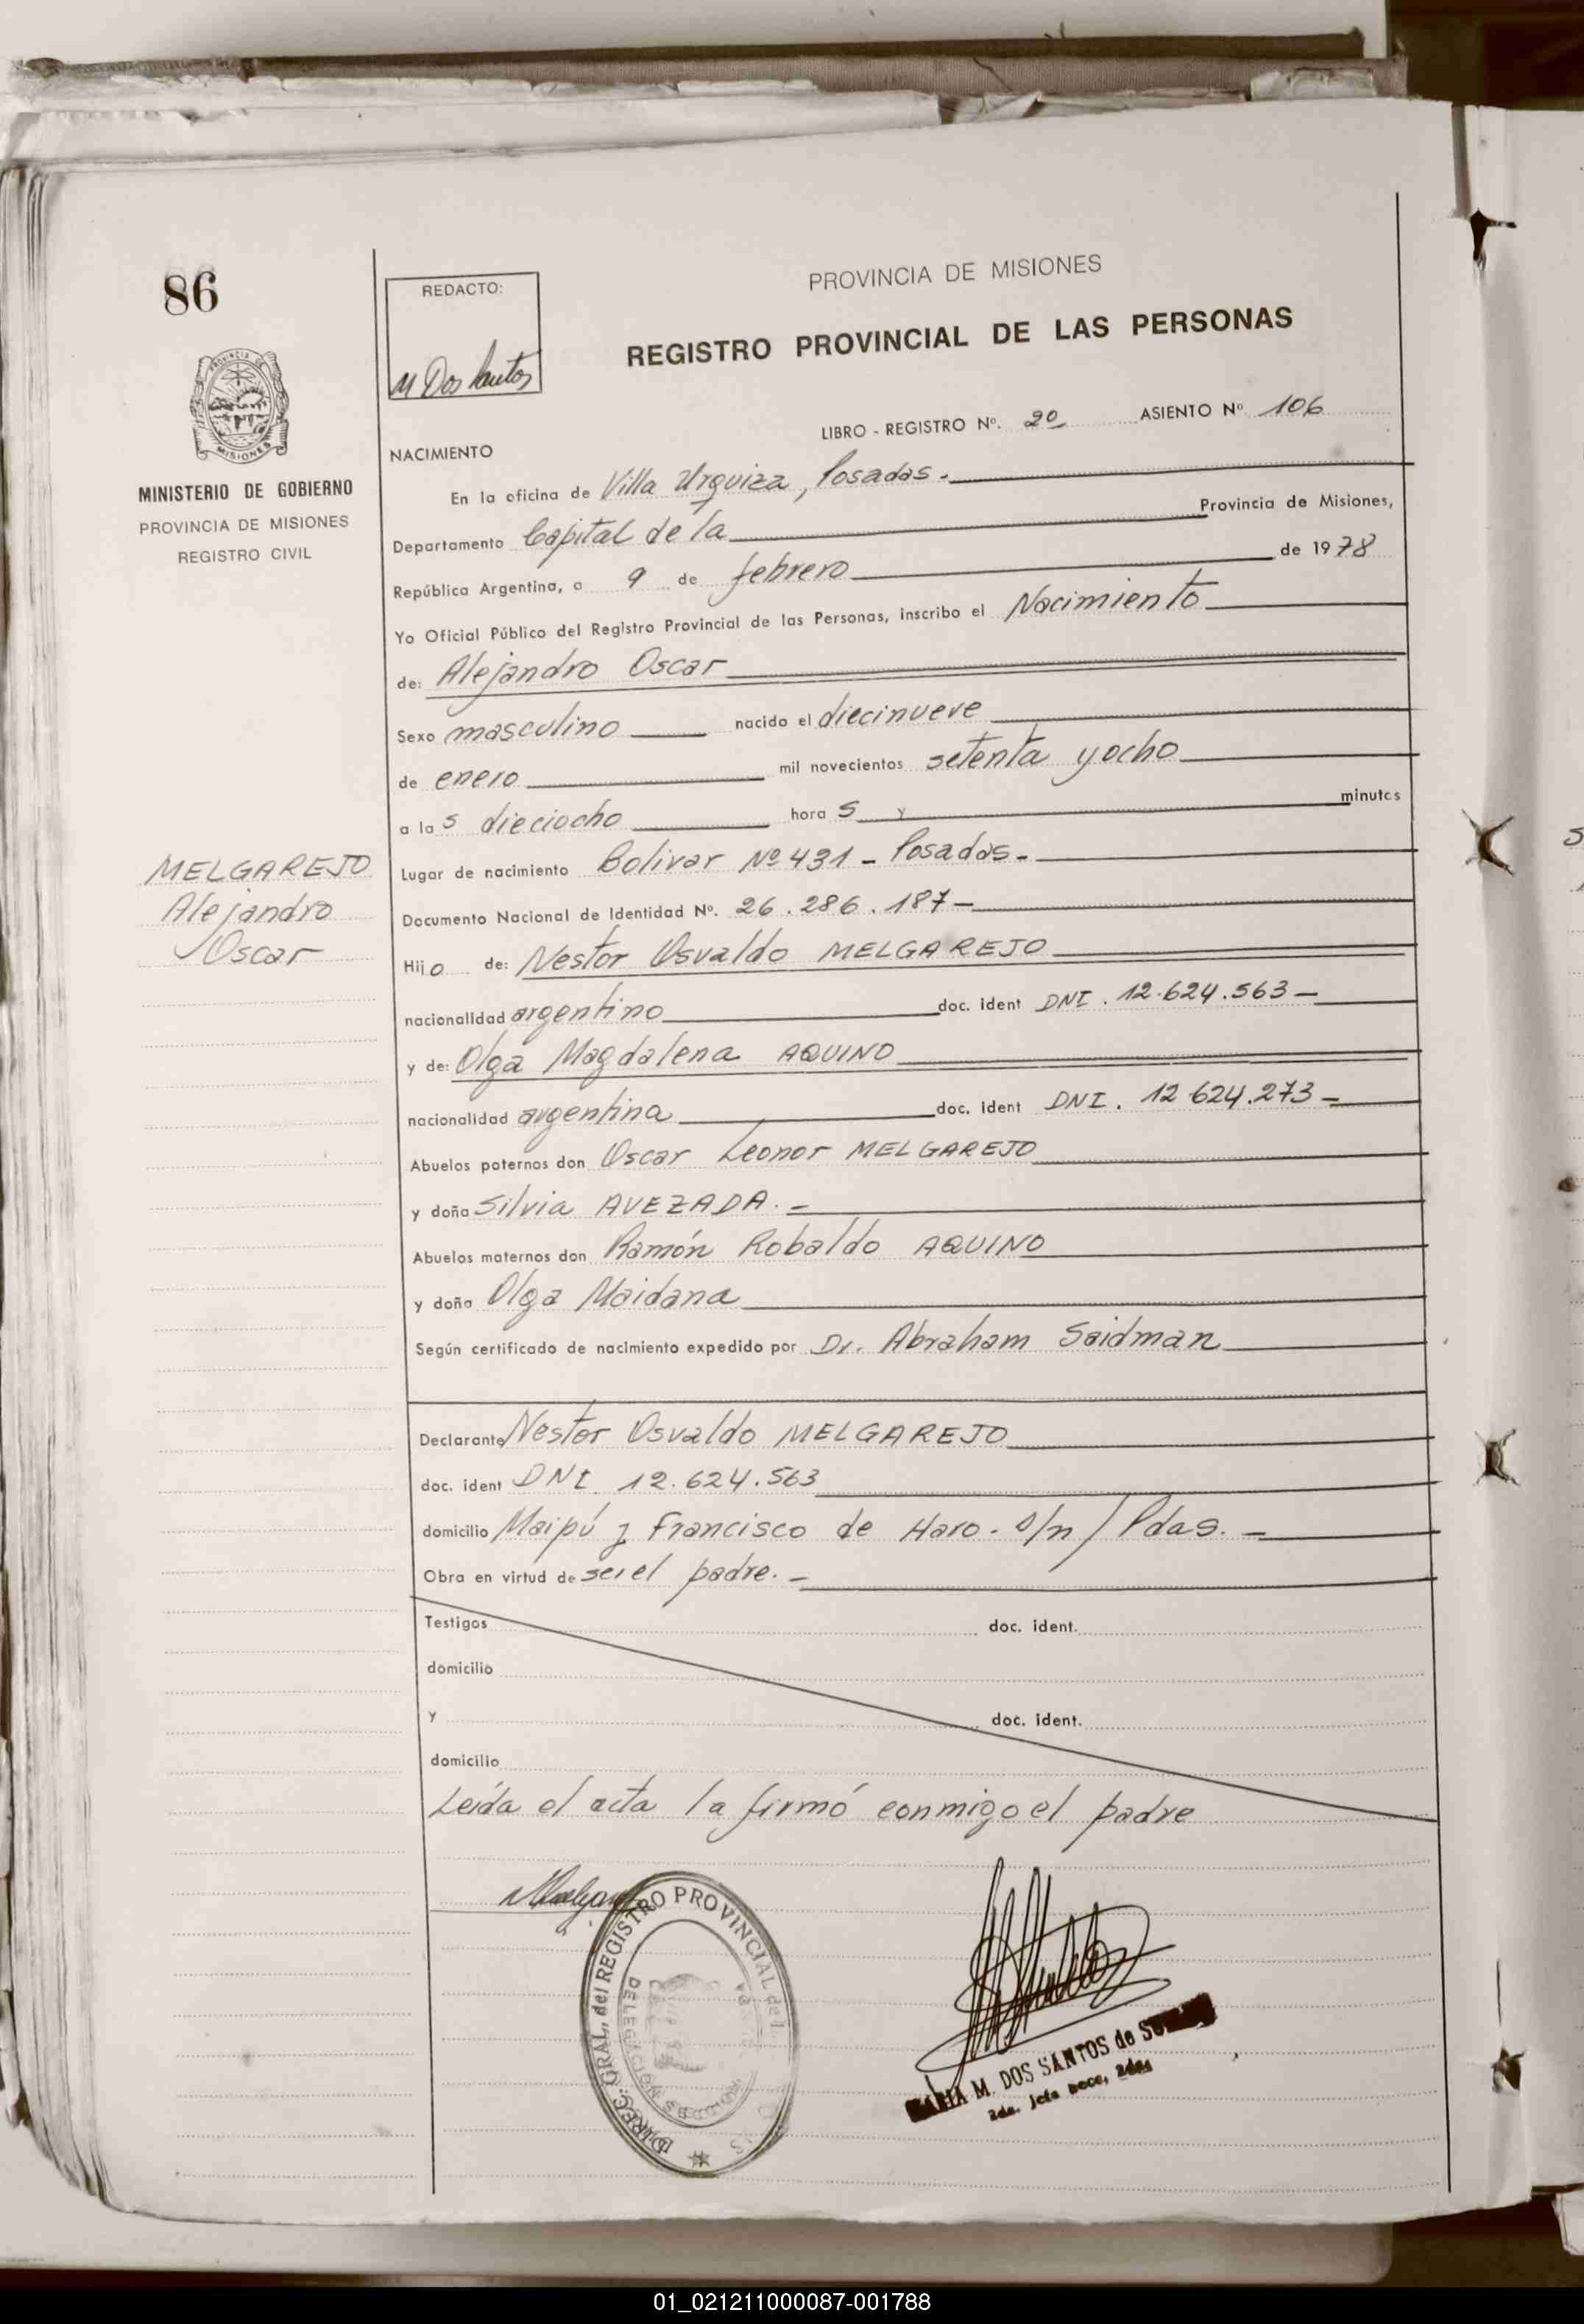 86
PROVINCIA DE
MISIONES
MINISTERIO DE GOBIERNO
PROVINCIA DE MISIONES
REGISTRO CIVIL
REDACTO:
M Dos Santos
PROVINCIA DE MISIONES
REGISTRO PROVINCIAL DE LAS PERSONAS
LIBRO - REGISTRO Nº. 20 ASIENTO Nº 106
NACIMIENTO
En la oficina de Villa Urquiza, Posadas.-
Departamento Capital de la Provincia de Misiones,
República Argentina, a 9 de febrero de 1978
Yo Oficial Público del Registro Provincial de las Personas, inscribo el Nacimiento
de: Alejandro Oscar
Sexo masculino nacido el diecinueve
de enero mil novecientos setenta y ocho
a las dieciocho horas y minutos
Lugar de nacimiento Bolivar Nº 431 - Posadas.-
Documento Nacional de Identidad Nº. 26.286.187-
Hijo de: Nestor Osvaldo MELGAREJO
nacionalidad argentino doc. ident DNI. 12.624.563-
y de: Olga Magdalena AQUINO
nacionalidad argentina doc. ident DNI. 12 624.273-
Abuelos paternos don Oscar Leonor MELGAREJO
y doña Silvia AVEZADA.-
Abuelos maternos don Ramón Robaldo AQUINO
y doña Olga Maidana
Según certificado de nacimiento expedido por Dr. Abraham Saidman
Declarante Nestor Osvaldo MELGAREJO
doc. ident DNI. 12.624.563
domicilio Maipú y Francisco de Haro. s/n / Pdas.-
Obra en virtud de ser el padre.-
Testigos doc. ident.
domicilio
y doc. ident.
domicilio
Leída el acta la firmó conmigo el padre
MELGAREJO
Alejandro
Oscar
DIREC. GRAL. del REGISTRO PROVINCIAL de l
DELEGACION
M. DOS SANTOS de
2da. Jefe
01_021211000087-001788